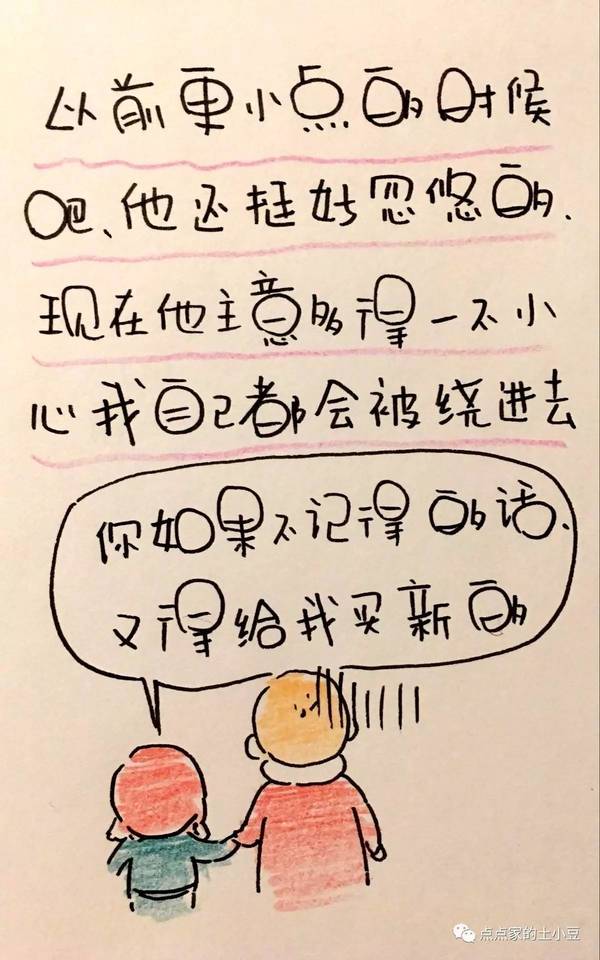 以前更小点的时候
吧、他还挺好忽悠的、
现在他主意多得一不小
心我自己都会被绕进去
你如果不记得的话、
又得给我买新的
点点家的土小豆